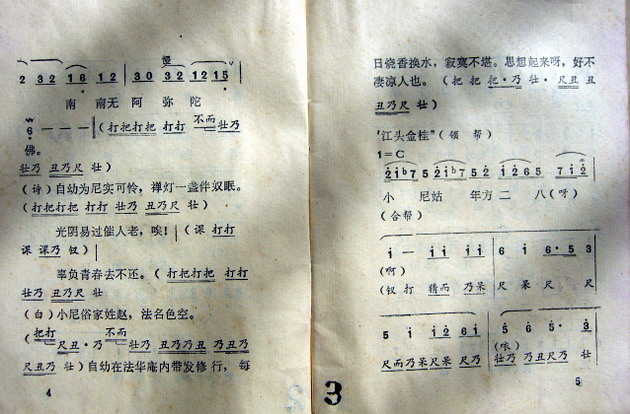 慢
2 3 2 1 6 1 2 | 3 0 3 2 1 2 1 5 |
南 南无 阿 弥 陀
6 — — — | (打把打把 打打 不而 壮乃
佛。
壮乃 丑乃尺 壮)
(诗)自幼为尼实可怜，禅灯一盏伴奴眠。
(打把打把 打打 壮乃 丑乃尺 壮)
光阴易过催人老，唉！|(课 打打
课 课乃 钗)|
辜负青春去不还。(打把打把 打打
壮乃 丑乃尺 壮
(白)小尼俗家姓赵，法名色空。
(把打 不而
尺丑·乃 壮乃 丑乃乃丑 乃丑乃
尺丑乃 壮)自幼在法华庵内带发修行，每
4
日烧香换水，寂寞不堪。思想起来呀，好不
凄凉人也。(把 把 把·乃 壮·尺丑 丑
丑乃尺 壮)
“江头金桂”(领 帮)
1=C
2 i b7 5 2 i b7 5 2 i 2 6 5 7 i 2
小 尼姑 年方 二 八(呀)
(合帮)
i — i i i i | 6 i 6·5 3 |
(啊)
(钗 打 精而 乃呆 尺 呆 尺 尺
5 i i 2 6 i | 5 6 5· 3 |
(哝)
尺而乃呆尺呆 尺乃 壮乃 乃丑乃尺 壮
5
3